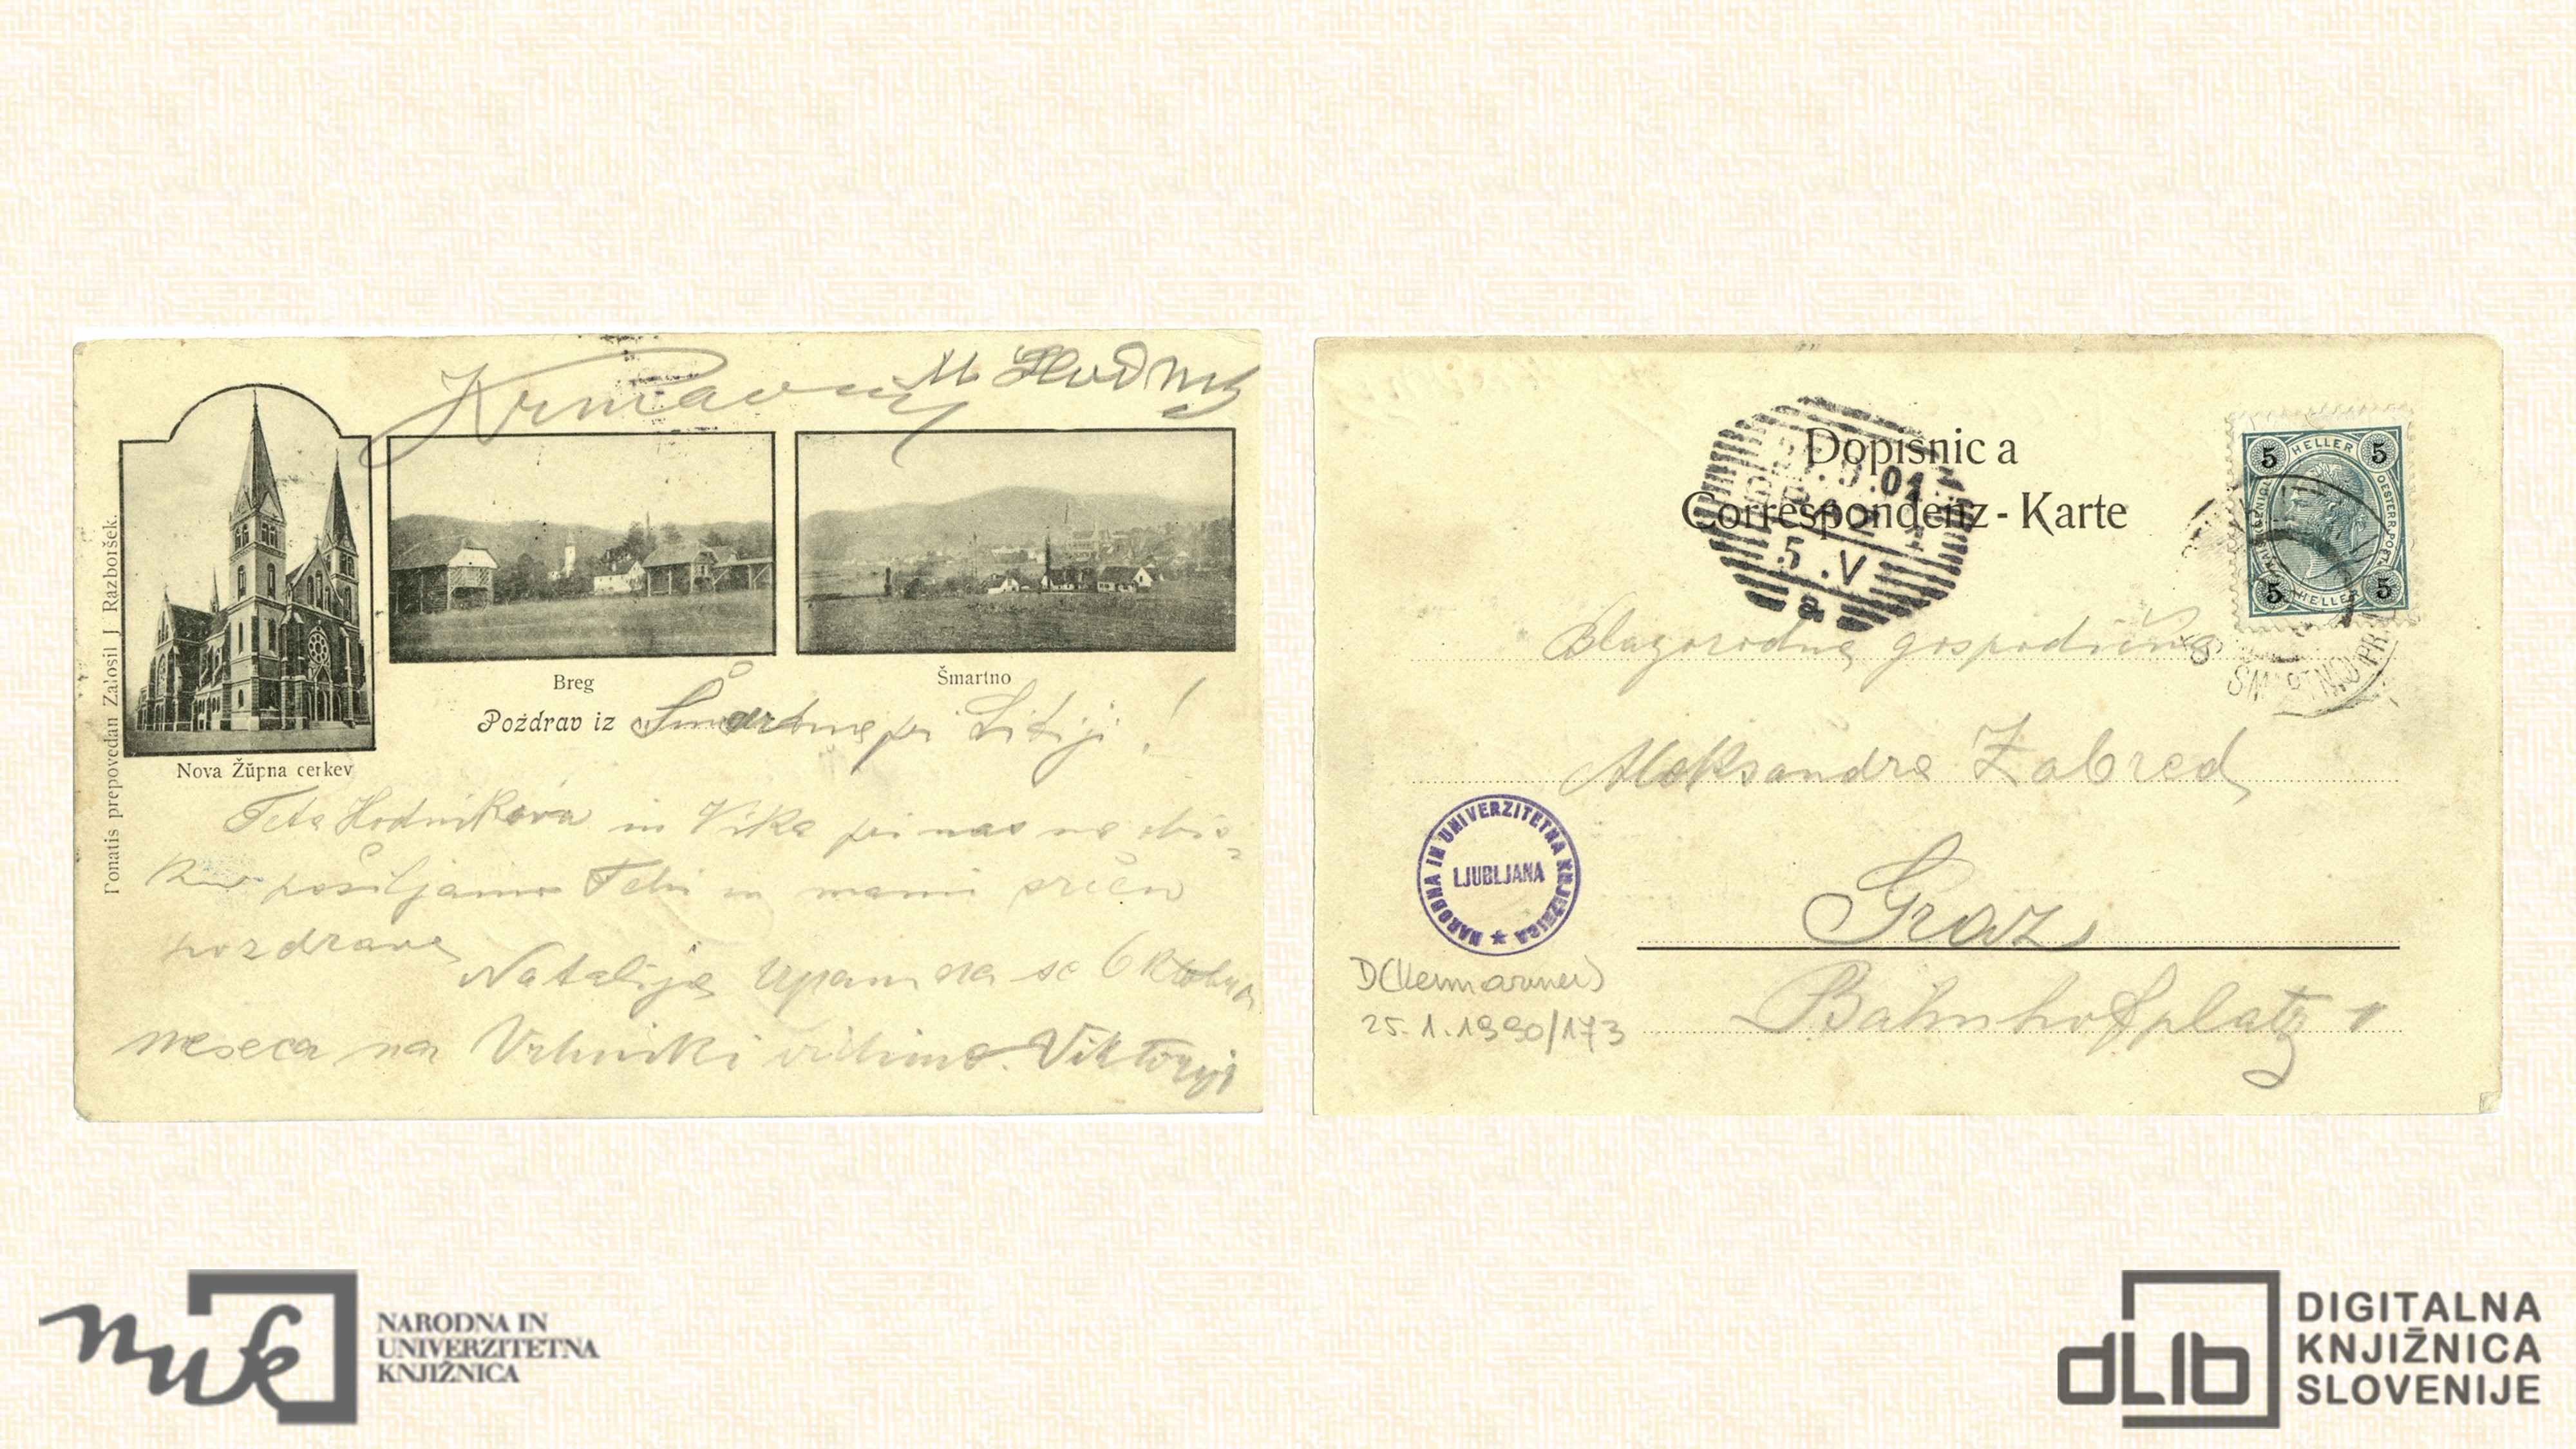 M. Hodnik
Ponatis prepovedan Založil J. Razboršek.
Breg
Šmartno
Pozdrav iz Šmartna pri Litiji!
Nova Župna cerkev
Teta Hodnikova in Vika pri nas na obis-
ku pošiljamo Tebi in mami srčne
pozdrave
Natalija Upam da se 6 oktobra
meseca na Vrhniki vidimo. Viktorija
Dopisnica
Correspondenz-Karte
.9.01
5.V
a
5 HELLER 5
5 HELLER 5
ŠMARTNO PR.
Blagorodna gospodična
Aleksandra Zabred
Graz
Bahnhofplatz 1
NARODNA IN UNIVERZITETNA KNJIŽNICA
LJUBLJANA
25.1.1990/173
nuk
NARODNA IN
UNIVERZITETNA
KNJIŽNICA
dLib
DIGITALNA
KNJIŽNICA
SLOVENIJE